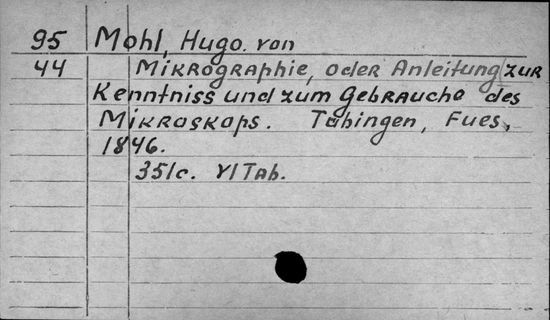 95 Mohl, Hugo. von
44 Mikrographie, oder Anleitung zur
Kenntniss und zum Gebrauche des
Mikroskops. Tübingen, Fues,
1846.
351c. VI Tab.